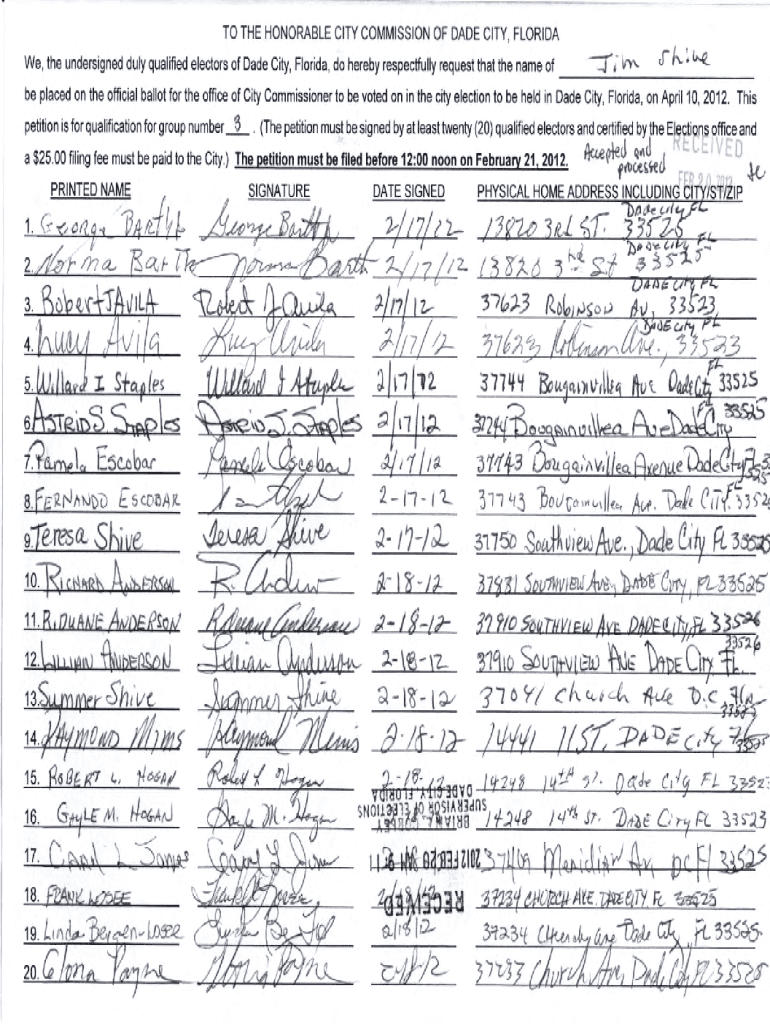 TO THE HONORABLE CITY COMMISSION OF DADE CITY, FLORIDA
We, the undersigned duly qualified electors of Dade City, Florida, do hereby respectfully request that the name of Jim Shive
be placed on the official ballot for the office of City Commissioner to be voted on in the city election to be held in Dade City, Florida, on April 10, 2012. This
petition is for qualification for group number 3. (The petition must be signed by at least twenty (20) qualified electors and certified by the Elections office and
a $25.00 filing fee must be paid to the City.) The petition must be filed before 12:00 noon on February 21, 2012. Accepted and processed
RECEIVED
FEB 20 2012
PRINTED NAME SIGNATURE DATE SIGNED PHYSICAL HOME ADDRESS INCLUDING CITY/ST/ZIP
1. George Barthf George Barth 2/17/12 13820 3rd ST. Dade City FL 33525
2. Norma Barth Norma Barth 2/17/12 13820 3rd St Dade City FL 33525
3. Robert J AVILA Robert J Avila 2/17/12 37623 Robinson Av, DADE City FL 33523
4. Lucy Avila Lucy Avila 2/17/12 37623 Robinson Ave., DADE City FL 33523
5. Willard I Staples Willard I Staples 2/17/12 37744 Bougainvillea Ave Dade City FL 33525
6. ASTRID S. STAPLES ASTRID S. STAPLES 2/17/12 37744 Bougainvillea Ave Dade City FL 33525
7. Pamela Escobar Pamela Escobar 2/17/12 37743 Bougainvillea Avenue Dade City FL
8. FERNANDO ESCOBAR 2-17-12 37743 Bougainvillea Ave. Dade City.
9. Teresa Shive Teresa Shive 2-17-12 37750 Southview Ave., Dade City FL 33525
10. RICHARD ANDERSON R. Anderson 2-18-12 37931 SOUTHVIEW AVE, DADE CITY, FL 33525
11. R. DUANE ANDERSON R Duane Anderson 2-18-12 37910 SOUTHVIEW AVE DADE CITY, FL 33526
12. LILLIAN ANDERSON Lillian Anderson 2-18-12 37910 SOUTHVIEW AVE DADE CITY FL 33526
13. Summer Shive Summer Shive 2-18-12 37041 Church Ave D.C. Fla
14. RAYMOND MIMS Raymond Mims 2-18-12 14441 11 ST. DADE City
15. ROBERT L. HOGAN Robert L Hogan 2-18-12 14248 14th St. Dade City FL
16. GAYLE M. HOGAN Gayle M. Hogan 14248 14th ST. DADE CITY FL 33523
SUPERVISOR OF ELECTIONS
DADE CITY FLORIDA
17. Carol L Jones Carol L. Jones Meridian Av DC Fl 33525
2012 FEB 20
18. FRANK LOSEE 2/18/12 37234 CHURCH AVE. DADE CITY FL 33525
RECEIVED
19. Linda Bergen-Losee 2/18/12 37234 Church Ave Dade City FL 33525
20. Gloria Payne Gloria Payne 37233 Church Av, Dade City FL 33525